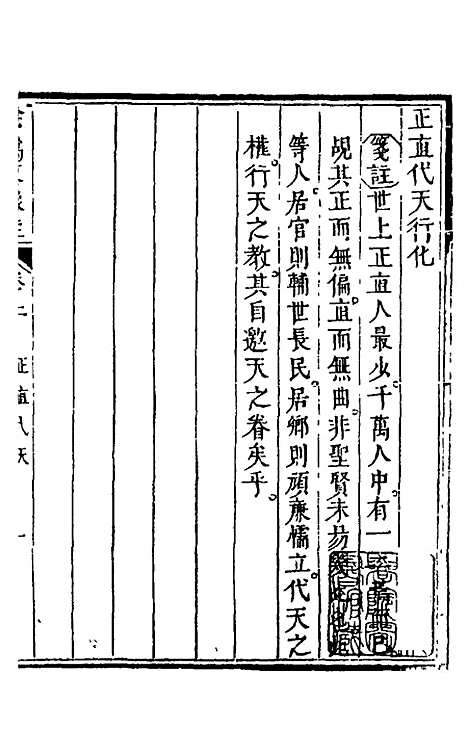 正直代天行化
箋註世上正直人最少。千萬人中有一
覘其正而無偏。直而無曲。非聖賢未易
等人。居官則輔世長民。居鄉則頑廉懦立。代天之
權。行天之教。其自邀天之眷矣乎。
卷二　正直代天　一